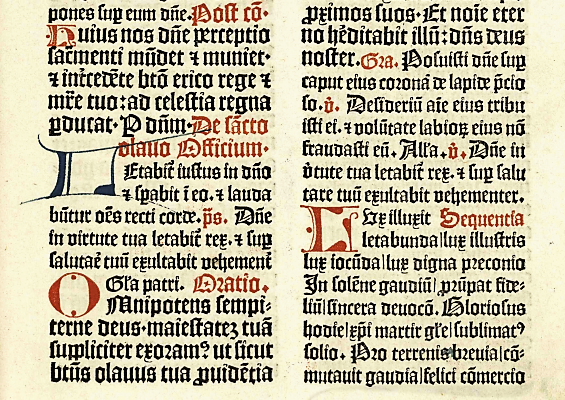 pones sup eum dñe. Post cõ.
Huius nos dñe perceptio
sacm̃enti mũdet ⁊ muniet.
⁊ ĩtercedẽte btõ erico rege ⁊
mr̃e tuo: ad celestia regna
ꝑducat. P dñm. De sãcto
olauo Officium.
LEtabiť iustus in dño
⁊ spabit ĩ eo. ⁊ lauda
bũtur oẽs recti corde. p̃s. Dñe
in virtute tua letabiť rex. ⁊ sup
salutaẽ tuũ exultabit vehemenť
Gl'a patri. Oratio.
OMnipotens sempi-
terne deus. maiestatez tuã
suppliciter exoramꝰ ut sicut
btũs olauus tua ꝓuidẽtia
ꝓximos suos. Et noĩe eter
no hẽditabit illũ: dñs deus
noster. Gra. Posuisti dñe sup
caput eius coronã de lapide p̃cio
so. v̉. Desideriũ aĩe eius tribu
isti ei. ⁊ volũtate labioꝝ eius nõ
fraudasti eũ. All'a. v̉. Dñe in
v̉tute tua letabiť rex. ⁊ sup salu
tare tuũ exultabit vehementer.
LUx illuxit Sequentia
letabunda|lux illustris
lux iocũda|lux digna preconio
In solẽne gaudiũ| ꝓrũpat fide-
liũ|sincera deuocõ. Gloriosus
hodie|xp̃i martir gl'e|sublimatꝰ
solio. Pro terrenis breuia|cõ-
mutauit gaudia|felici cõmercio